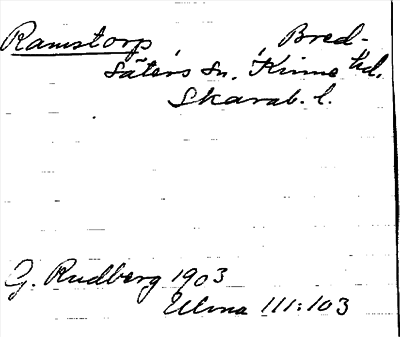 Ramstorp, Bred-
säters sn, Kinne hd.
Skarab. l.
G. Rudberg 1903
Ulma 111:103